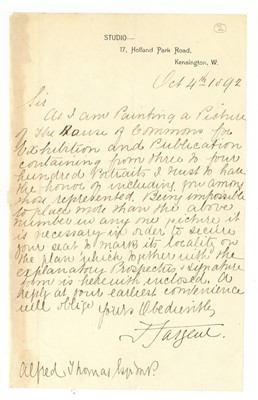 STUDIO—
17, Holland Park Road,
Kensington, W.
Oct 4th 1892
Sir
As I am Painting a Picture
of The House of Commons for
Exhibition and Publication
containing from three to four
hundred Portraits I trust to have
the honor of including you among
those represented. Being impossible
to place more than the above
number in any one picture it
is necessary in order to secure
your seat to mark its locality on
the plan which together with the
explanatory Prospectus & signature
form is herewith inclosed. A
reply at your earliest convenience
will oblige
yours Obediently
F Sargent
Alfred Thomas Esq M.P.